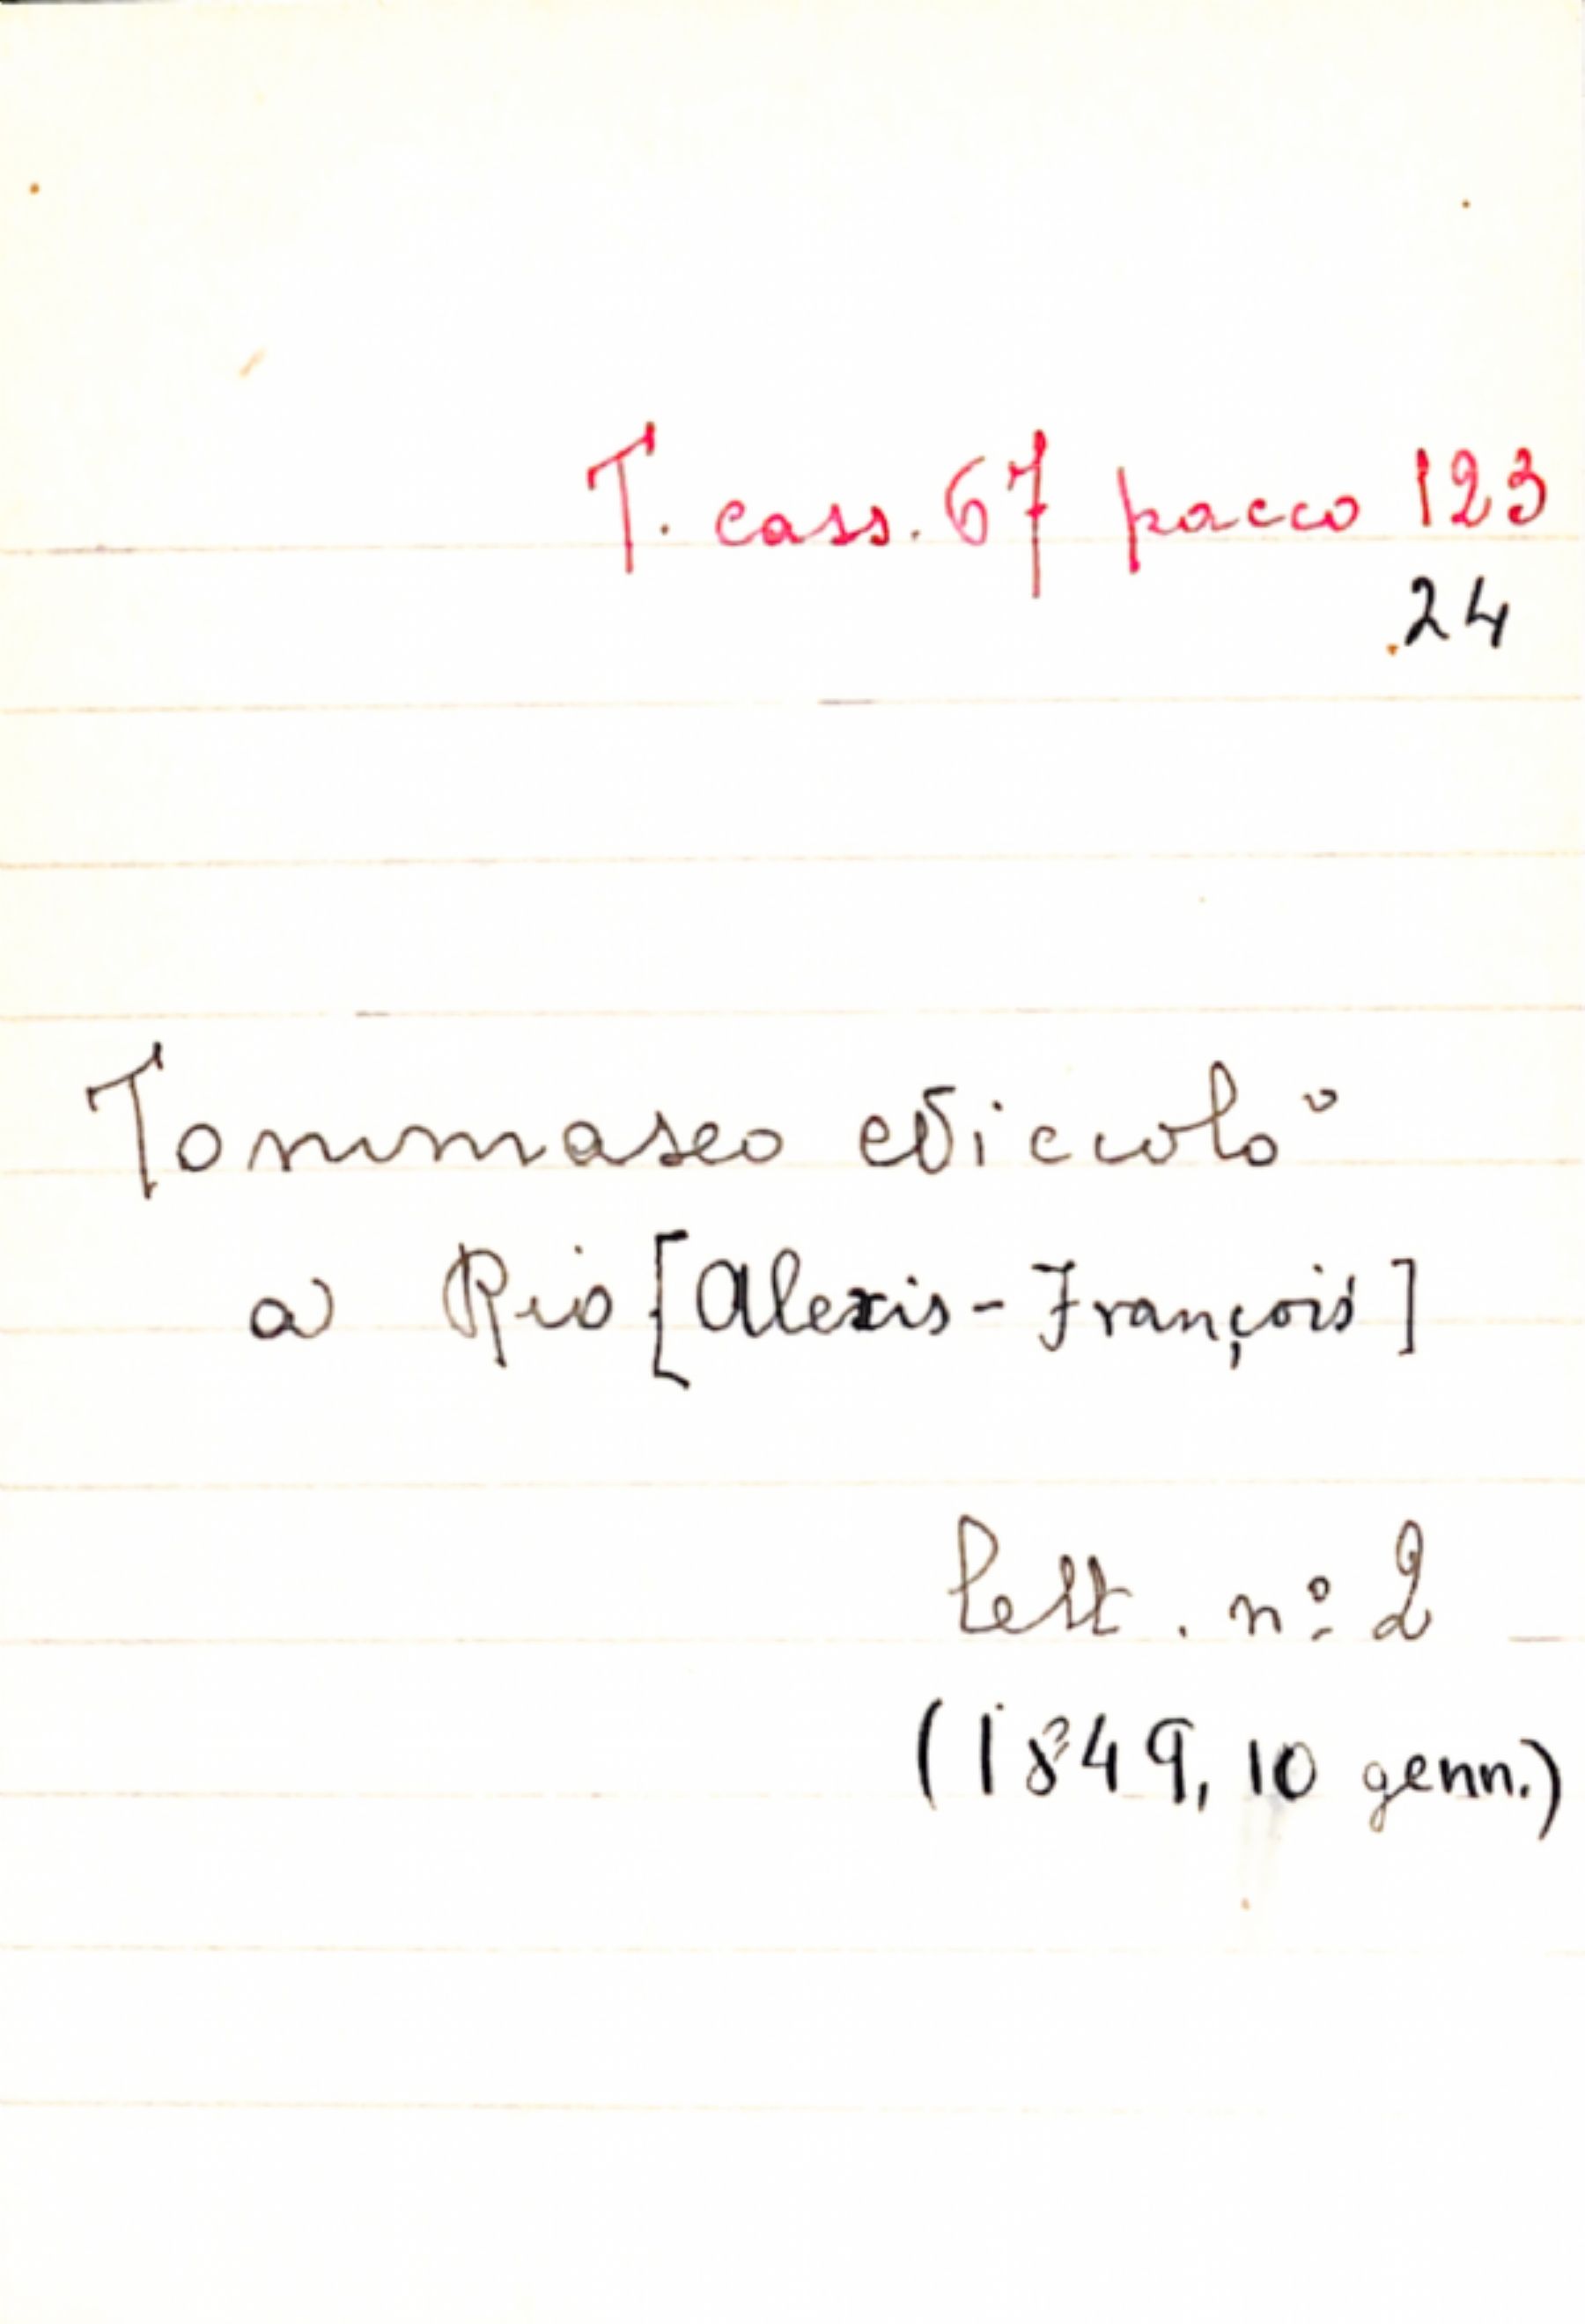 T. cass. 67 pacco 123
.24
Tommaseo Niccolò
a Rio [Alexis-François]
lett. nº 2
(1849, 10 genn.)